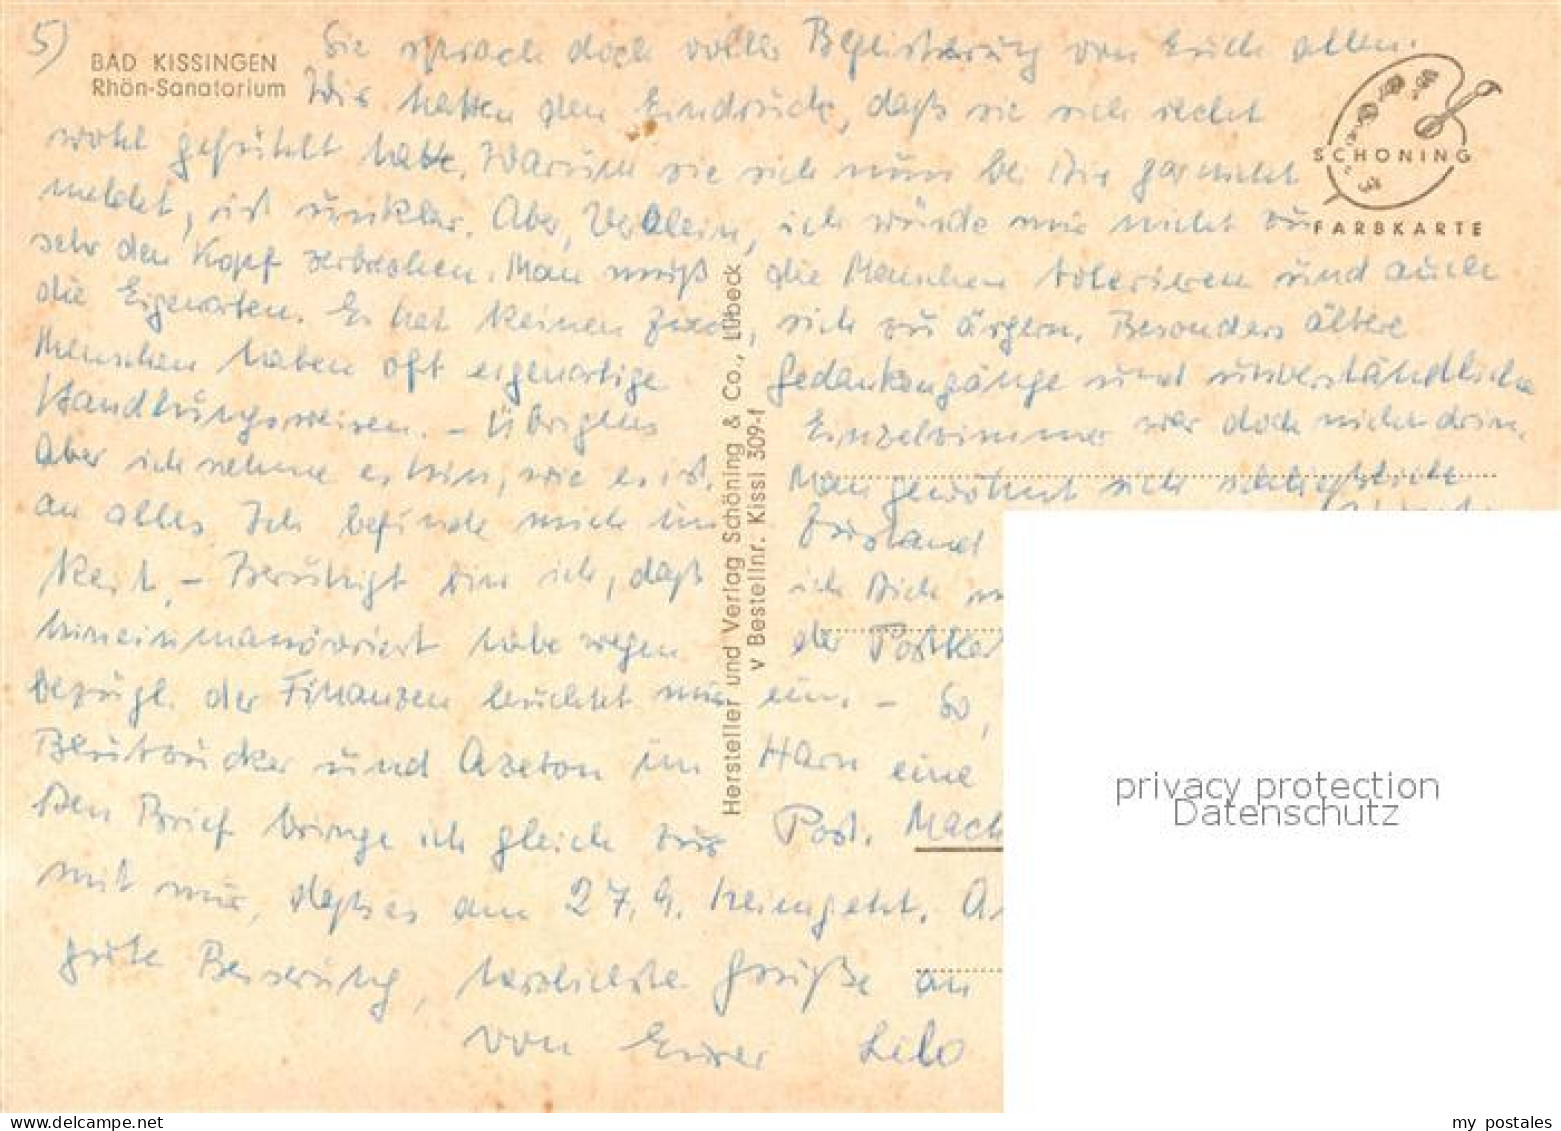 5)
BAD KISSINGEN
Rhön-Sanatorium
Sie sprach doch voller Begeisterung von Euch allen.
Wir hatten den Eindruck, daß sie sich recht
wohl gefühlt hatte. Warum sie sich nun bei Dir garnicht
meldet, ist unklar. Aber, ich würde mir nicht zu
sehr den Kopf zerbrechen. Man muß die Menschen tolerieren und auch
die Eigenarten. Es hat keinen Zweck, sich zu ärgern. Besonders ältere
Menschen haben oft eigenartige Gedankengänge und unverständliche
Handlungsweisen. – Übrigens Einzelzimmer war doch nicht drin.
Aber ich nehme es hin, wie es ist. Man gewöhnt sich schließlich
an alles. Ich befinde mich im Zustand
keit. – Beruhigt bin ich, daß ich Dich
hineinmanövriert habe wegen der Postkar
bezügl. der Finanzen leuchtet mir ein. – So,
Blutzucker und Azeton im Harn eine
Den Brief bringe ich gleich zur Post. Mach
mit mir, daß es am 27.9. heimgeht.
gute Besserung, herzlichste Grüße an
von Eurer Lilo
SCHÖNING
FARBKARTE
Hersteller und Verlag Schöning & Co., Lübeck
v Bestellnr. Kissi 309-f
privacy protection
Datenschutz
my postales